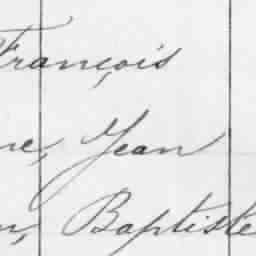 François
ne, Jean
n, Baptiste